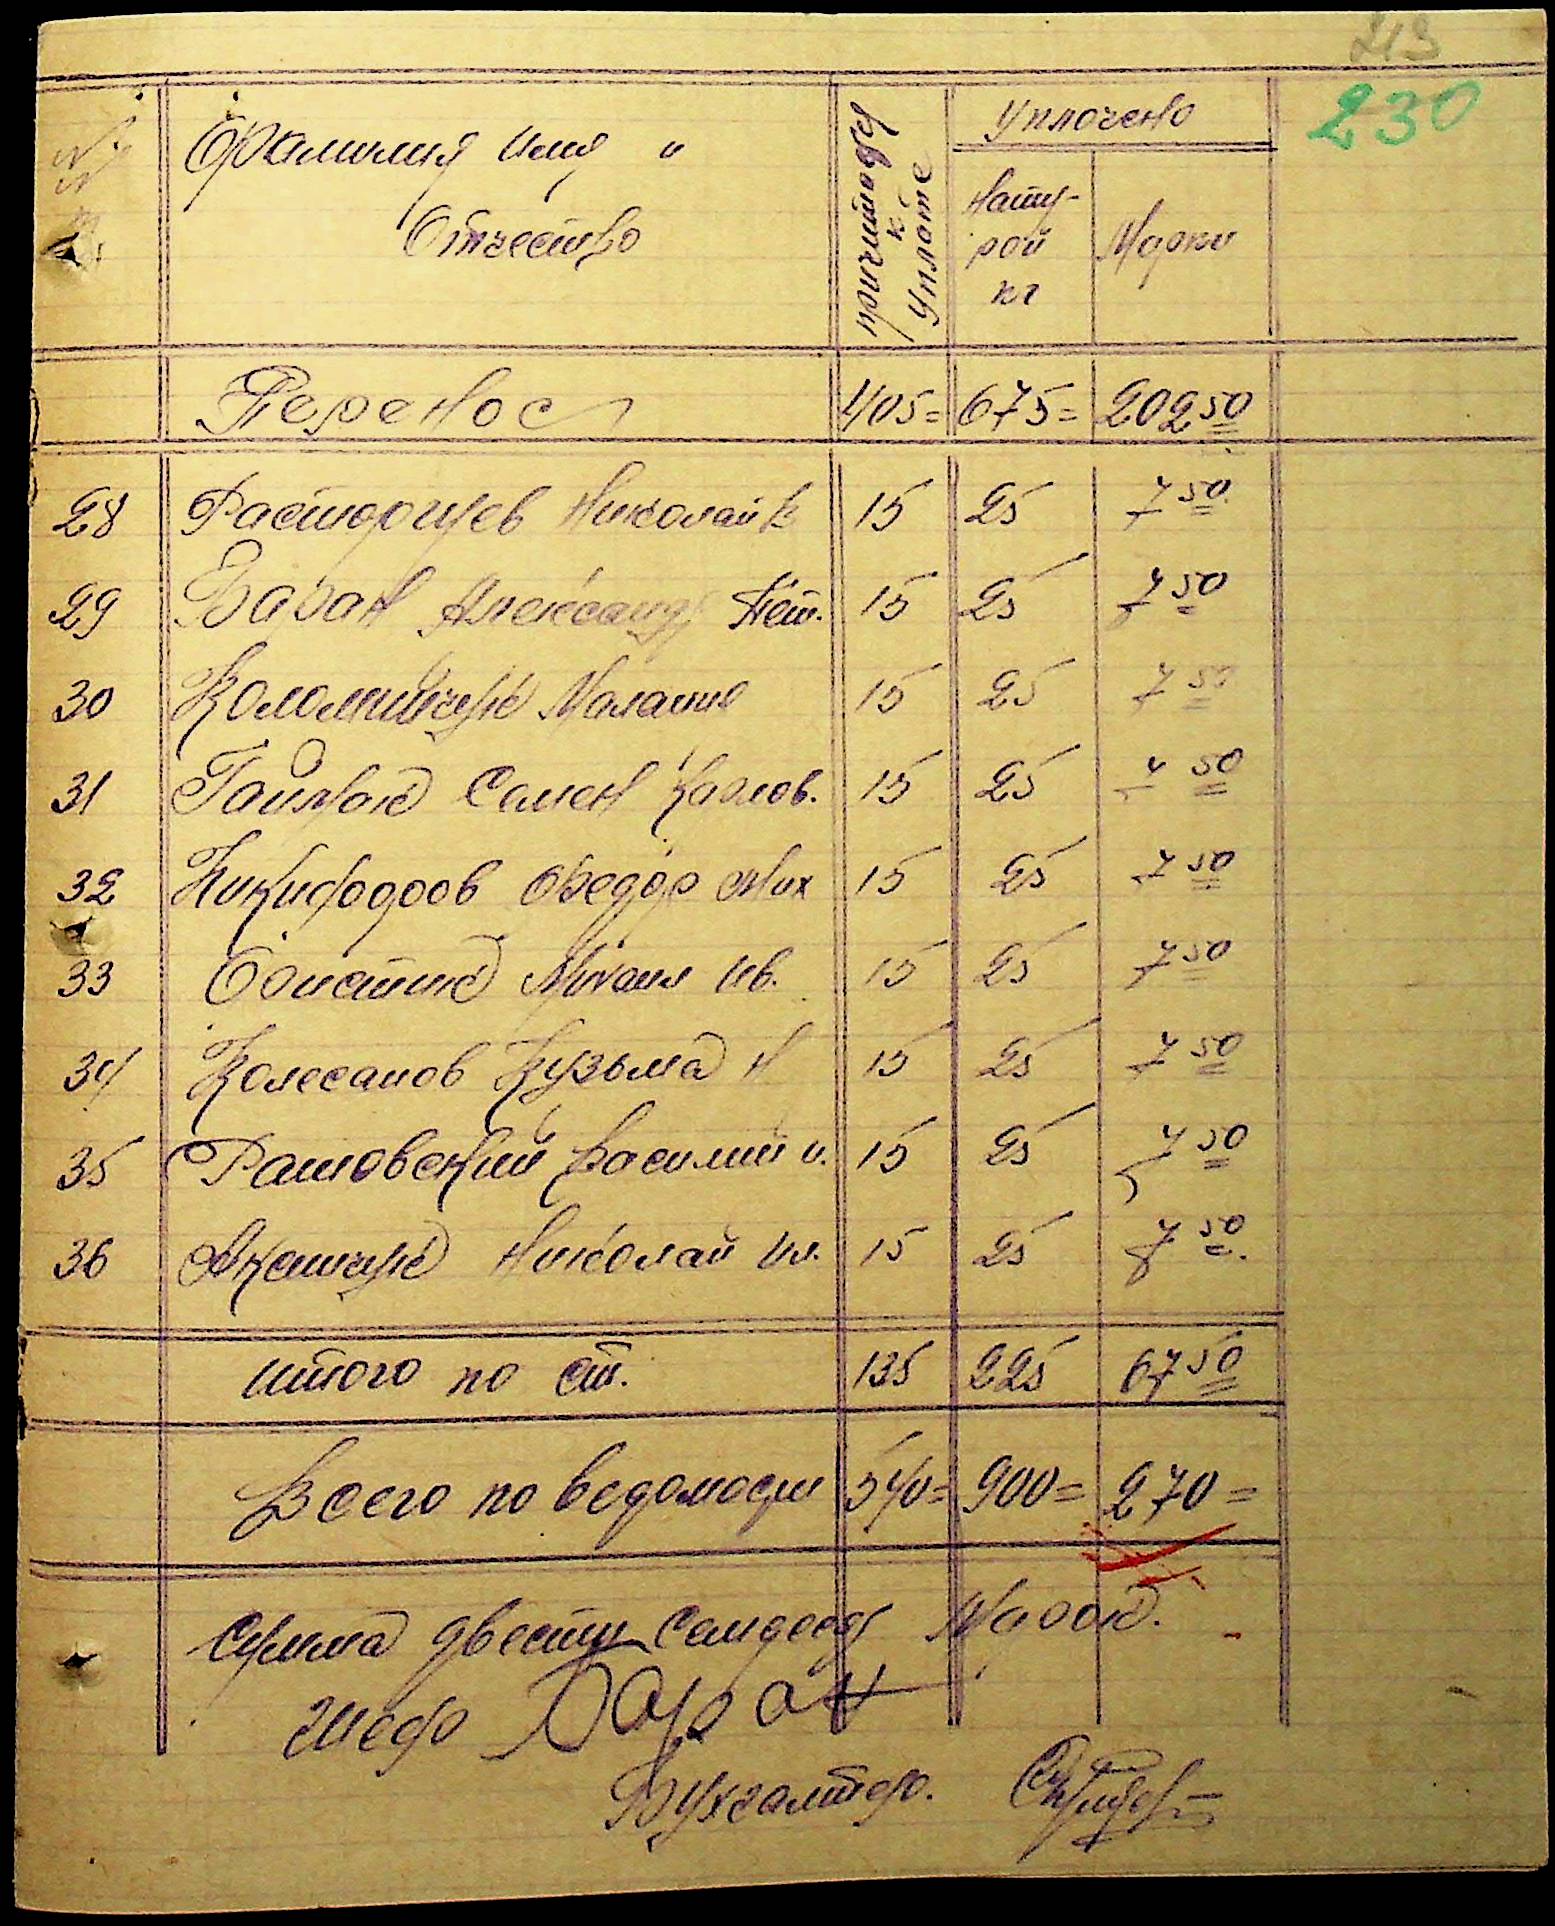 213
230
№ Фамилия имя и
Отчество
причитающ к Уплате
Уплочено
Нату-
рой
кг
Марки
Перенос 405= 675= 202 50
28 Расторгуев Николай К 15 25 7 50
29 Баран Александр Пет. 15 25 7 50
30 Коломийчук 15 25 7 50
31 Гайдюк Семен Карлов. 15 25 7 50
32 Никифоров Федор Мих 15 25 7 50
33 Михаил Ив. 15 25 7 50
34 Колесанов Кузьма Н 15 25 7 50
35 Рашовский Василий и. 15 25 7 50
36 Николай Ил. 15 25 7 50
итого по ст. 135 225 67 50
Всего по ведомости 540= 900= 270=
Сумма двести семдесят Марок.
Шеф Баран
Бухгалтер.